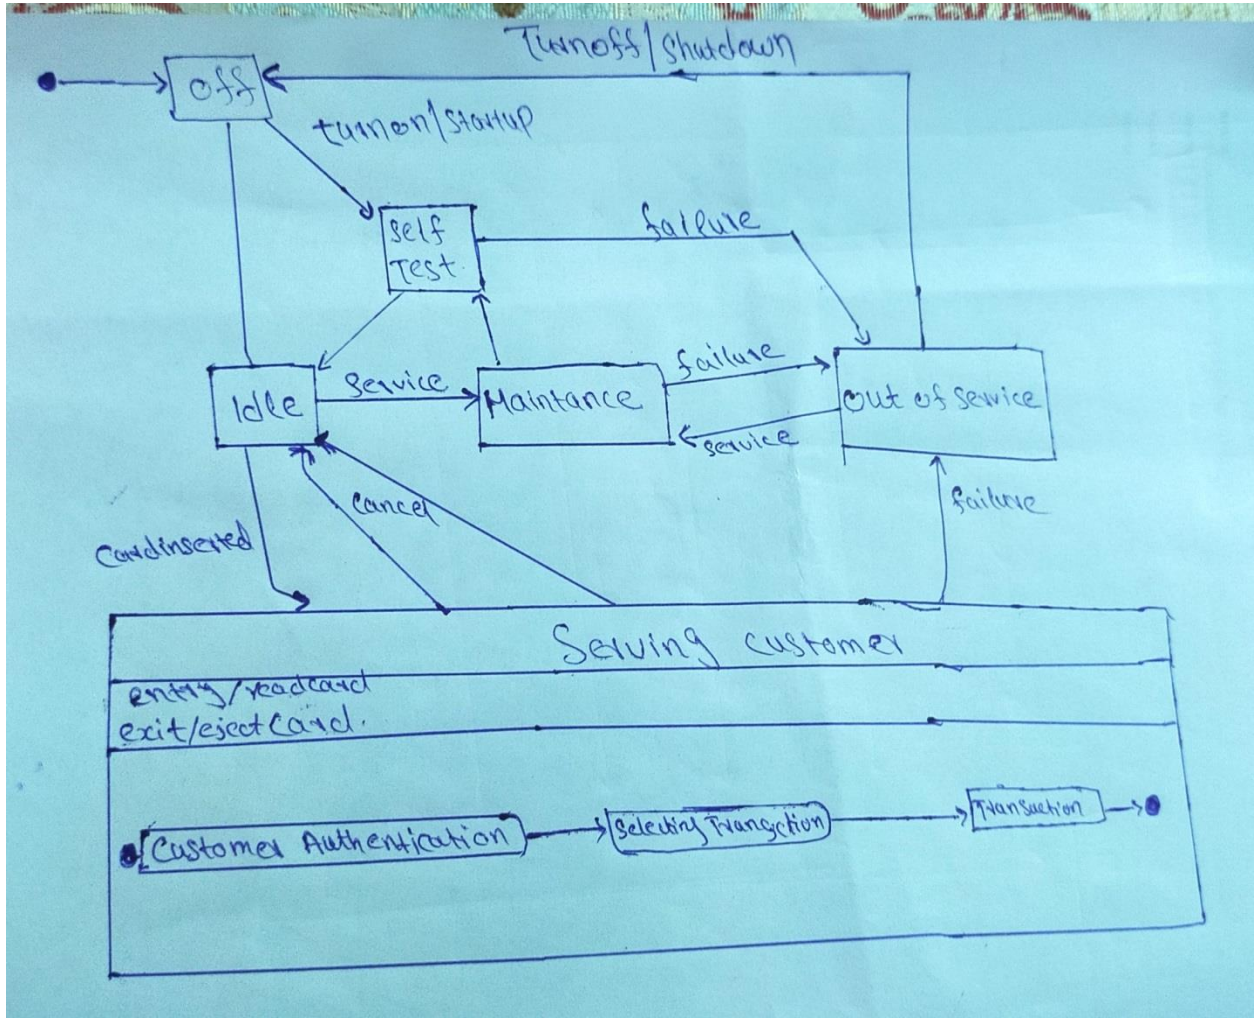 Turnoff/Shutdown
off
turnon/Startup
Self
Test.
failure
Idle
Service
Maintance
failure
out of service
service
Cancel
failure
Cardinserted
Serving customer
entry/readcard
exit/ejectCard.
Customer Authentication
Selecting Transction
Transaction